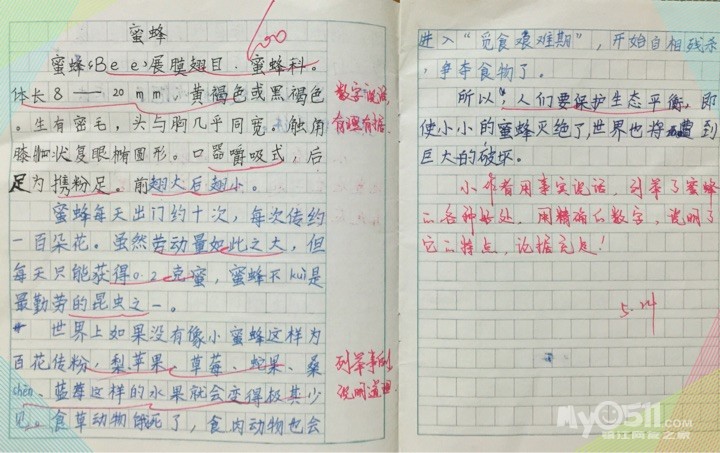 蜜蜂
100
蜜蜂(Bee)展膜翅目.蜜蜂科。
体长8—20mm,黄褐色或黑褐色
。生有密毛,头与胸几乎同宽。触角
膝牠状复眼椭圆形。口器嚼吸式,后
足为携粉足。前翅大后翅小。
数字说话,
有理有据
蜜蜂每天出门约十次,每次传约
一百朵花。虽然劳动量如此之大,但
每天只能获得0.2克蜜,蜜蜂不kuì是
最勤劳的昆虫之一。
世界上如果没有像小蜜蜂这样为
百花传粉,梨苹果、草莓、蛇果、桑
shèn、蓝莓这样的水果就会变得极其少
见。食草动物饿死了,食肉动物也会
列举事例,
说明道理
进入“觅食艰难期”,开始自相残杀
,争夺食物了。
所以,人们要保护生态平衡,即
使小小的蜜蜂灭绝了,世界也将遭到
巨大的破坏。
小作者用事实说话,列举了蜜蜂
的各种好处,用精确的数字,说明了
它的特点,论据充足!
5.24
My0511.COM
镇江网友之家